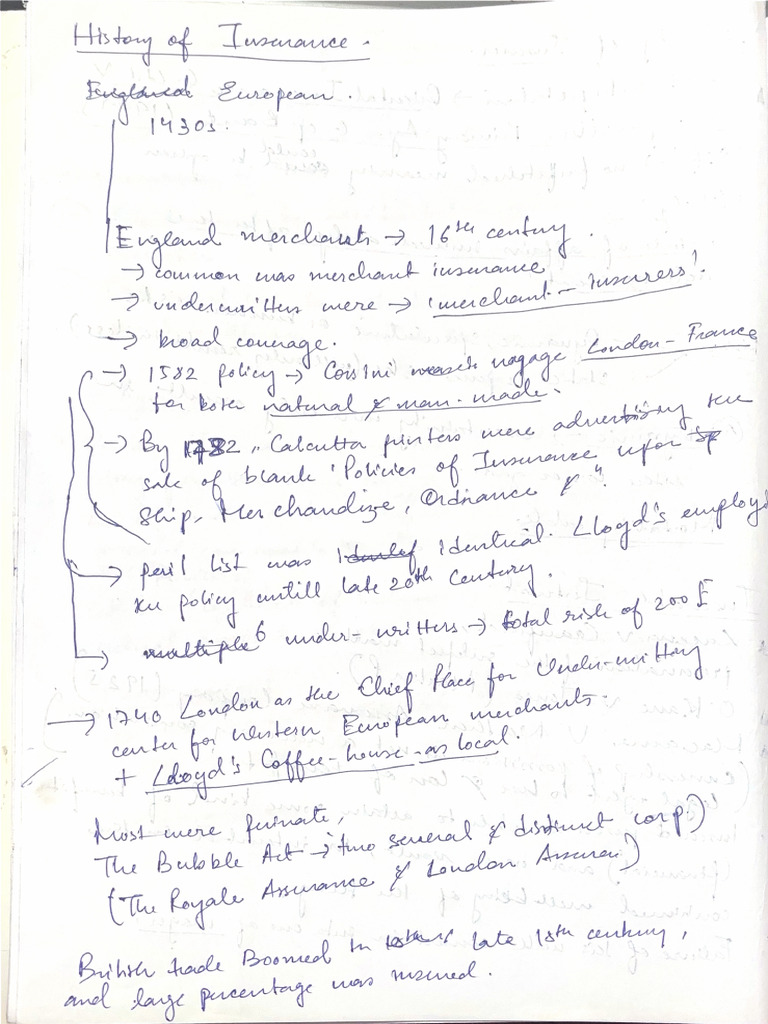 History of Insurance.
England European.
1430s.
England merchants → 16th century.
→ common was merchant insurance
→ underwritters were → 'merchant-insurers'.
→ broad coverage.
→ 1582 policy → Corsini voyage London-France
for both natural & man-made.
→ By 1782, Calcutta printers were advertising the
sale of blank 'Policies of Insurance upon
Ship, Merchandize, Ordnance &".
→ peril list was identical. Lloyd's employed
the policy untill late 20th Century.
→ multiple 6 under-writters → total risk of 200 £
→ 1740 London as the Chief Place for Under-writting
center for western European merchants.
+ Lloyd's Coffee-house-as local.
Most were private,
The Bubble Act → 'two several & distinct corp.)'
(The Royale Assurance & London Assuran)
British trade Boomed in late 18th century,
and large percentage was insured.